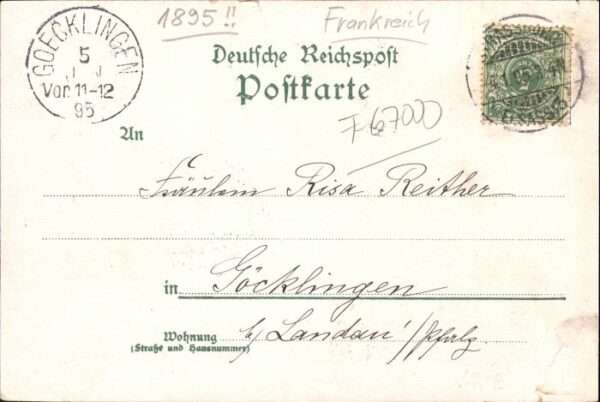 1895!!
Frankreich
GOECKLINGEN
5
Vor. 11-12
95
Deutsche Reichspost
Postkarte
F 67000
An
Fräulein Risa Reither
in Göcklingen
Wohnung b/ Landau /Pfalz
(Straße und Hausnummer)